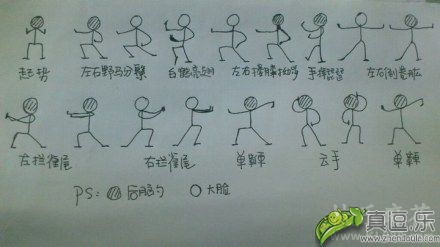 起势 左右野马分鬃 白鹤亮翅 左右搂膝拗步 手挥琵琶 左右倒卷肱
左拦雀尾 右拦雀尾 单鞭 云手 单鞭
PS: 后脑勺 大脸
真逗乐
www.zhendoule.com